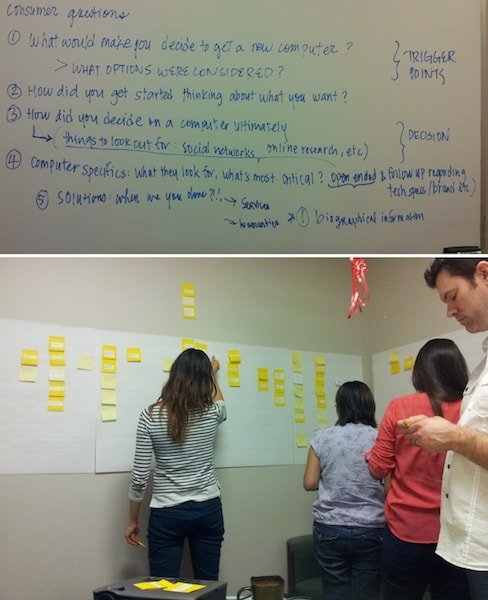 Consumer questions
① What would make you decide to get a new computer?
> WHAT OPTIONS WERE CONSIDERED?
TRIGGER
POINTS
② How did you get started thinking about what you want?
③ How did you decide on a computer ultimately
(things to look out for: social networks, online research, etc)
DECISION
④ Computer specifics: what they look for, what's most critical? Open ended & follow up regarding
tech specs/brand etc)
⑤ Solutions: when are you done?!! → Services
→ warranties * ① biographical information